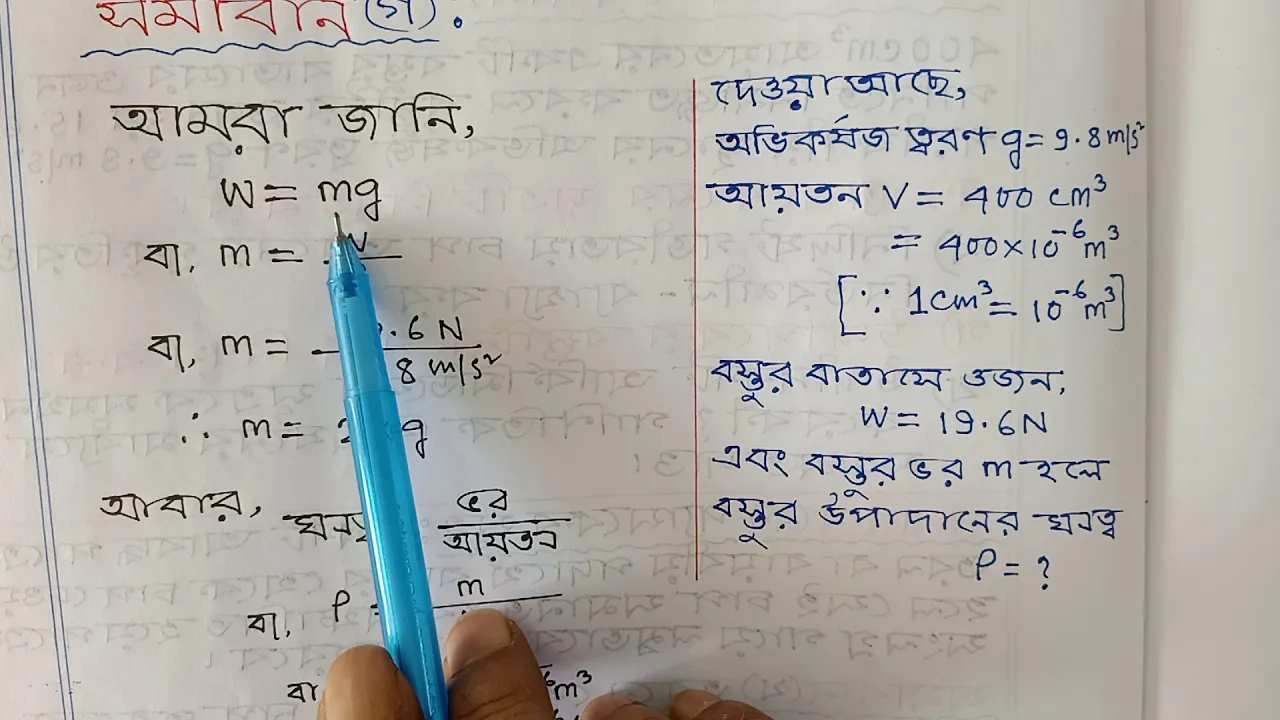 সমাধান (গ) :
আমরা জানি,
W = mg
বা, m =
বা, m = .6 N
8 m/s²
∴ m = 2 g
আবার,
ভর
আয়তন
বা, ρ = m
বা
m³
দেওয়া আছে,
অভিকর্ষজ ত্বরণ g = 9.8 m/s²
আয়তন V = 400 cm³
= 400×10⁻⁶ m³
[∵ 1cm³ = 10⁻⁶ m³]
বস্তুর বাতাসে ওজন,
W = 19.6N
এবং বস্তুর ভর m হলে
বস্তুর উপাদানের ঘনত্ব
ρ = ?